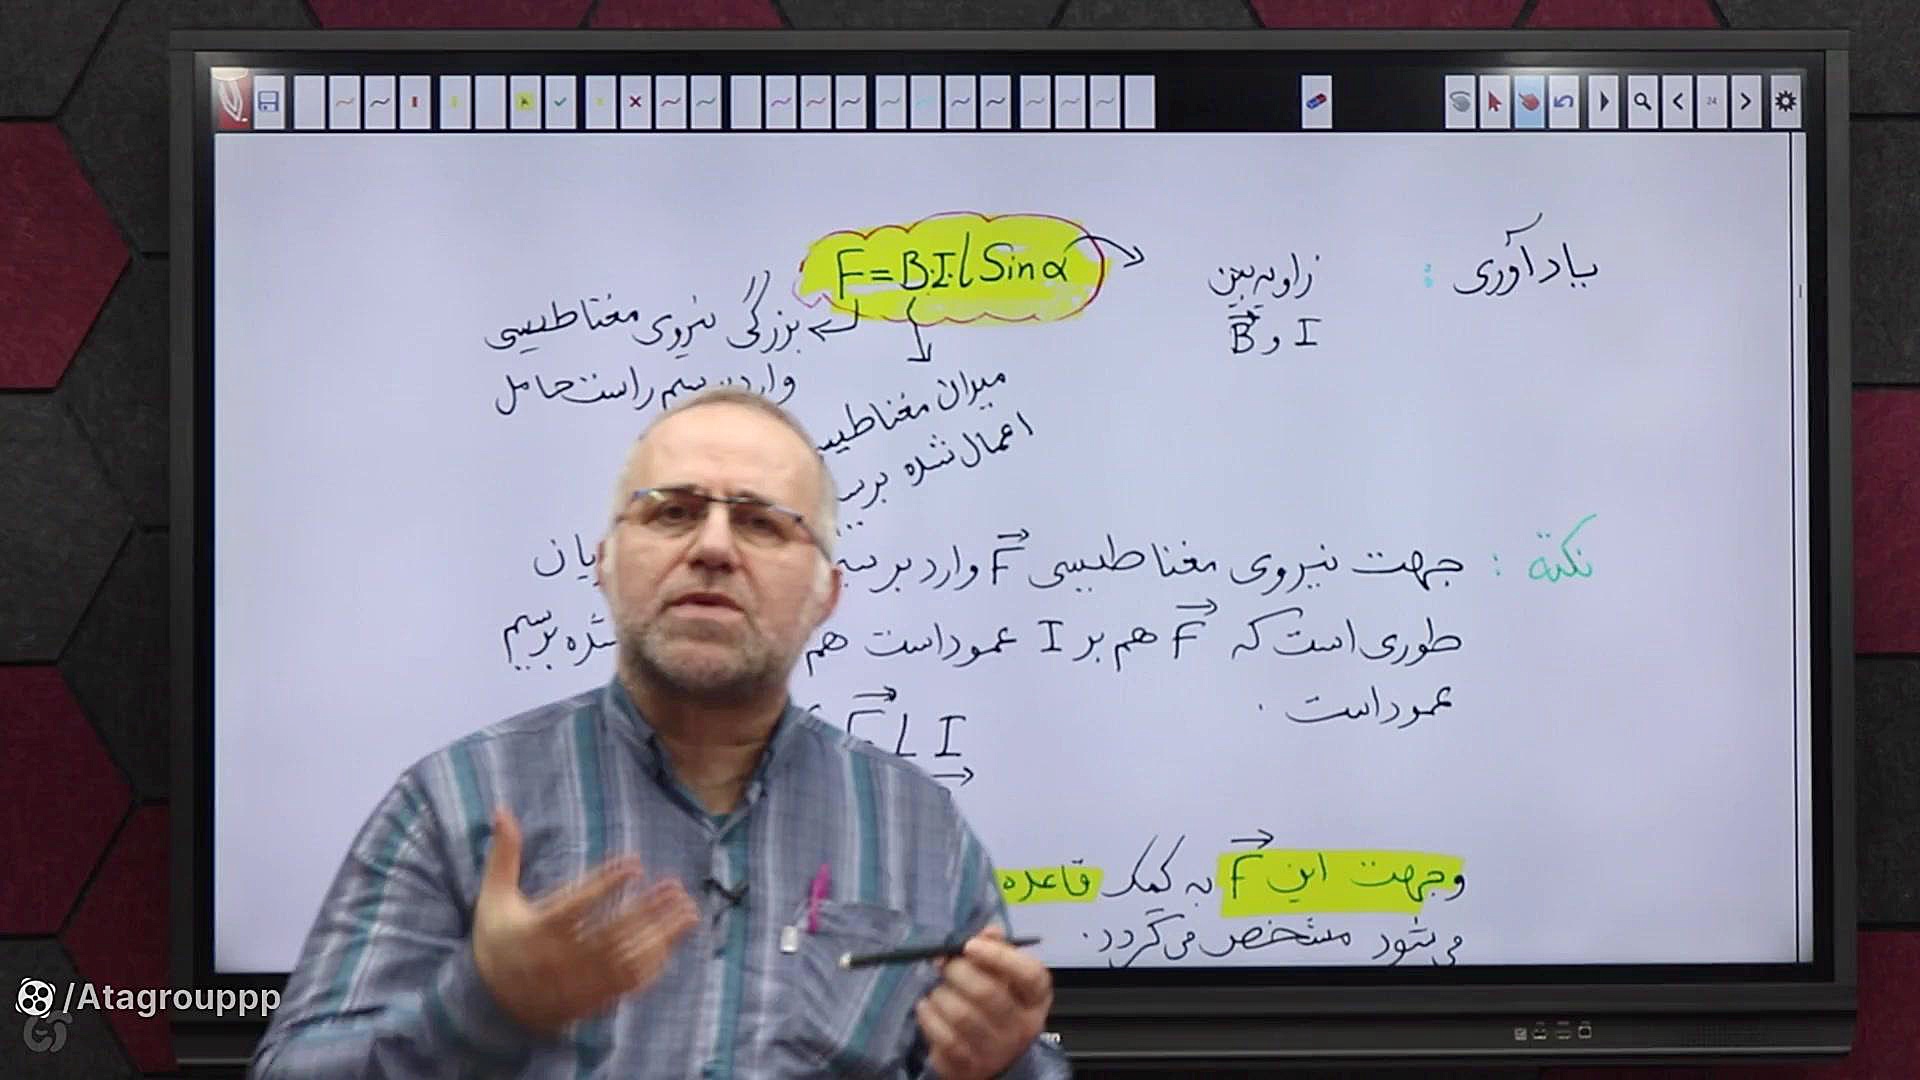 یادآوری :
F = B.I.l Sinα
زاویه بین
I و B⃗
بزرگی نیروی مغناطیسی
وارد بر سیم راست حامل
میزان مغناطیس
اعمال شده بر
نکته : جهت نیروی مغناطیسی F⃗ وارد بر
طوری است که F⃗ هم بر I عمود است هم شده بر سیم
عمود است .
F⃗ ⊥ I
وجهت این F⃗ به کمک قاعده
می‌شود مشخص می‌گردد.
24
/Atagrouppp